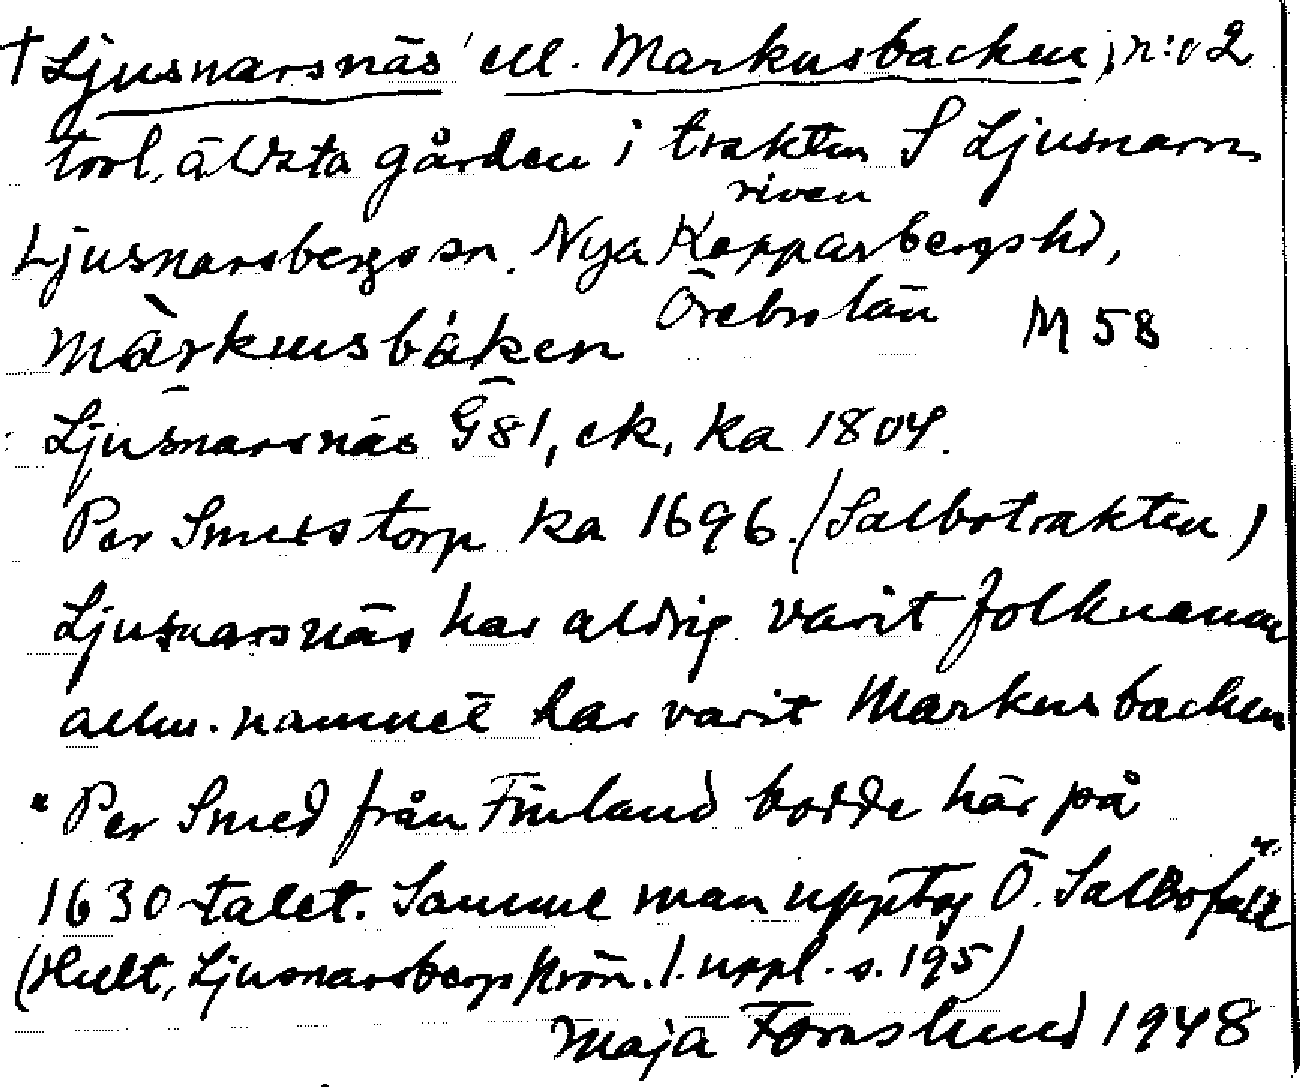 † Ljusnarsnäs ell. Markusbacken, n:o 2
trol. äldsta gården i trakten S Ljusnarn
riven
Ljusnarsbergs sn. Nya Kopparbergs hd,
Örebro län M 58
màrkusbáken
Ljusnarsnäs G 81, ek. ka 1804.
Per Smedstorp ka 1696. (Salbotrakten)
Ljusnarsnäs har aldrig varit folknamn
allm. namnet har varit Markusbacken
"Per Smed från Finland bodde här på
1630-talet. Samme man upptog Ö. Salbofall"
(Hult, Ljusnarsbergs krön. 1. uppl. s. 195)
Maja Forslund 1948